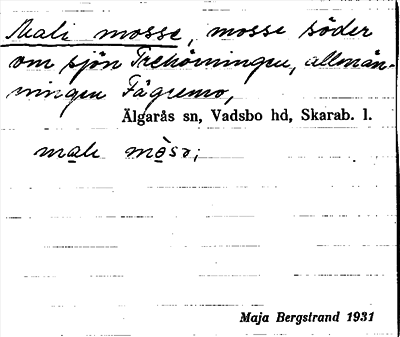 Mali mosse, mosse söder
om sjön Trehörningen, allmän-
ningen Fägremo,
Älgarås sn, Vadsbo hd, Skarab. l.
mali mòsə;
Maja Bergstrand 1931